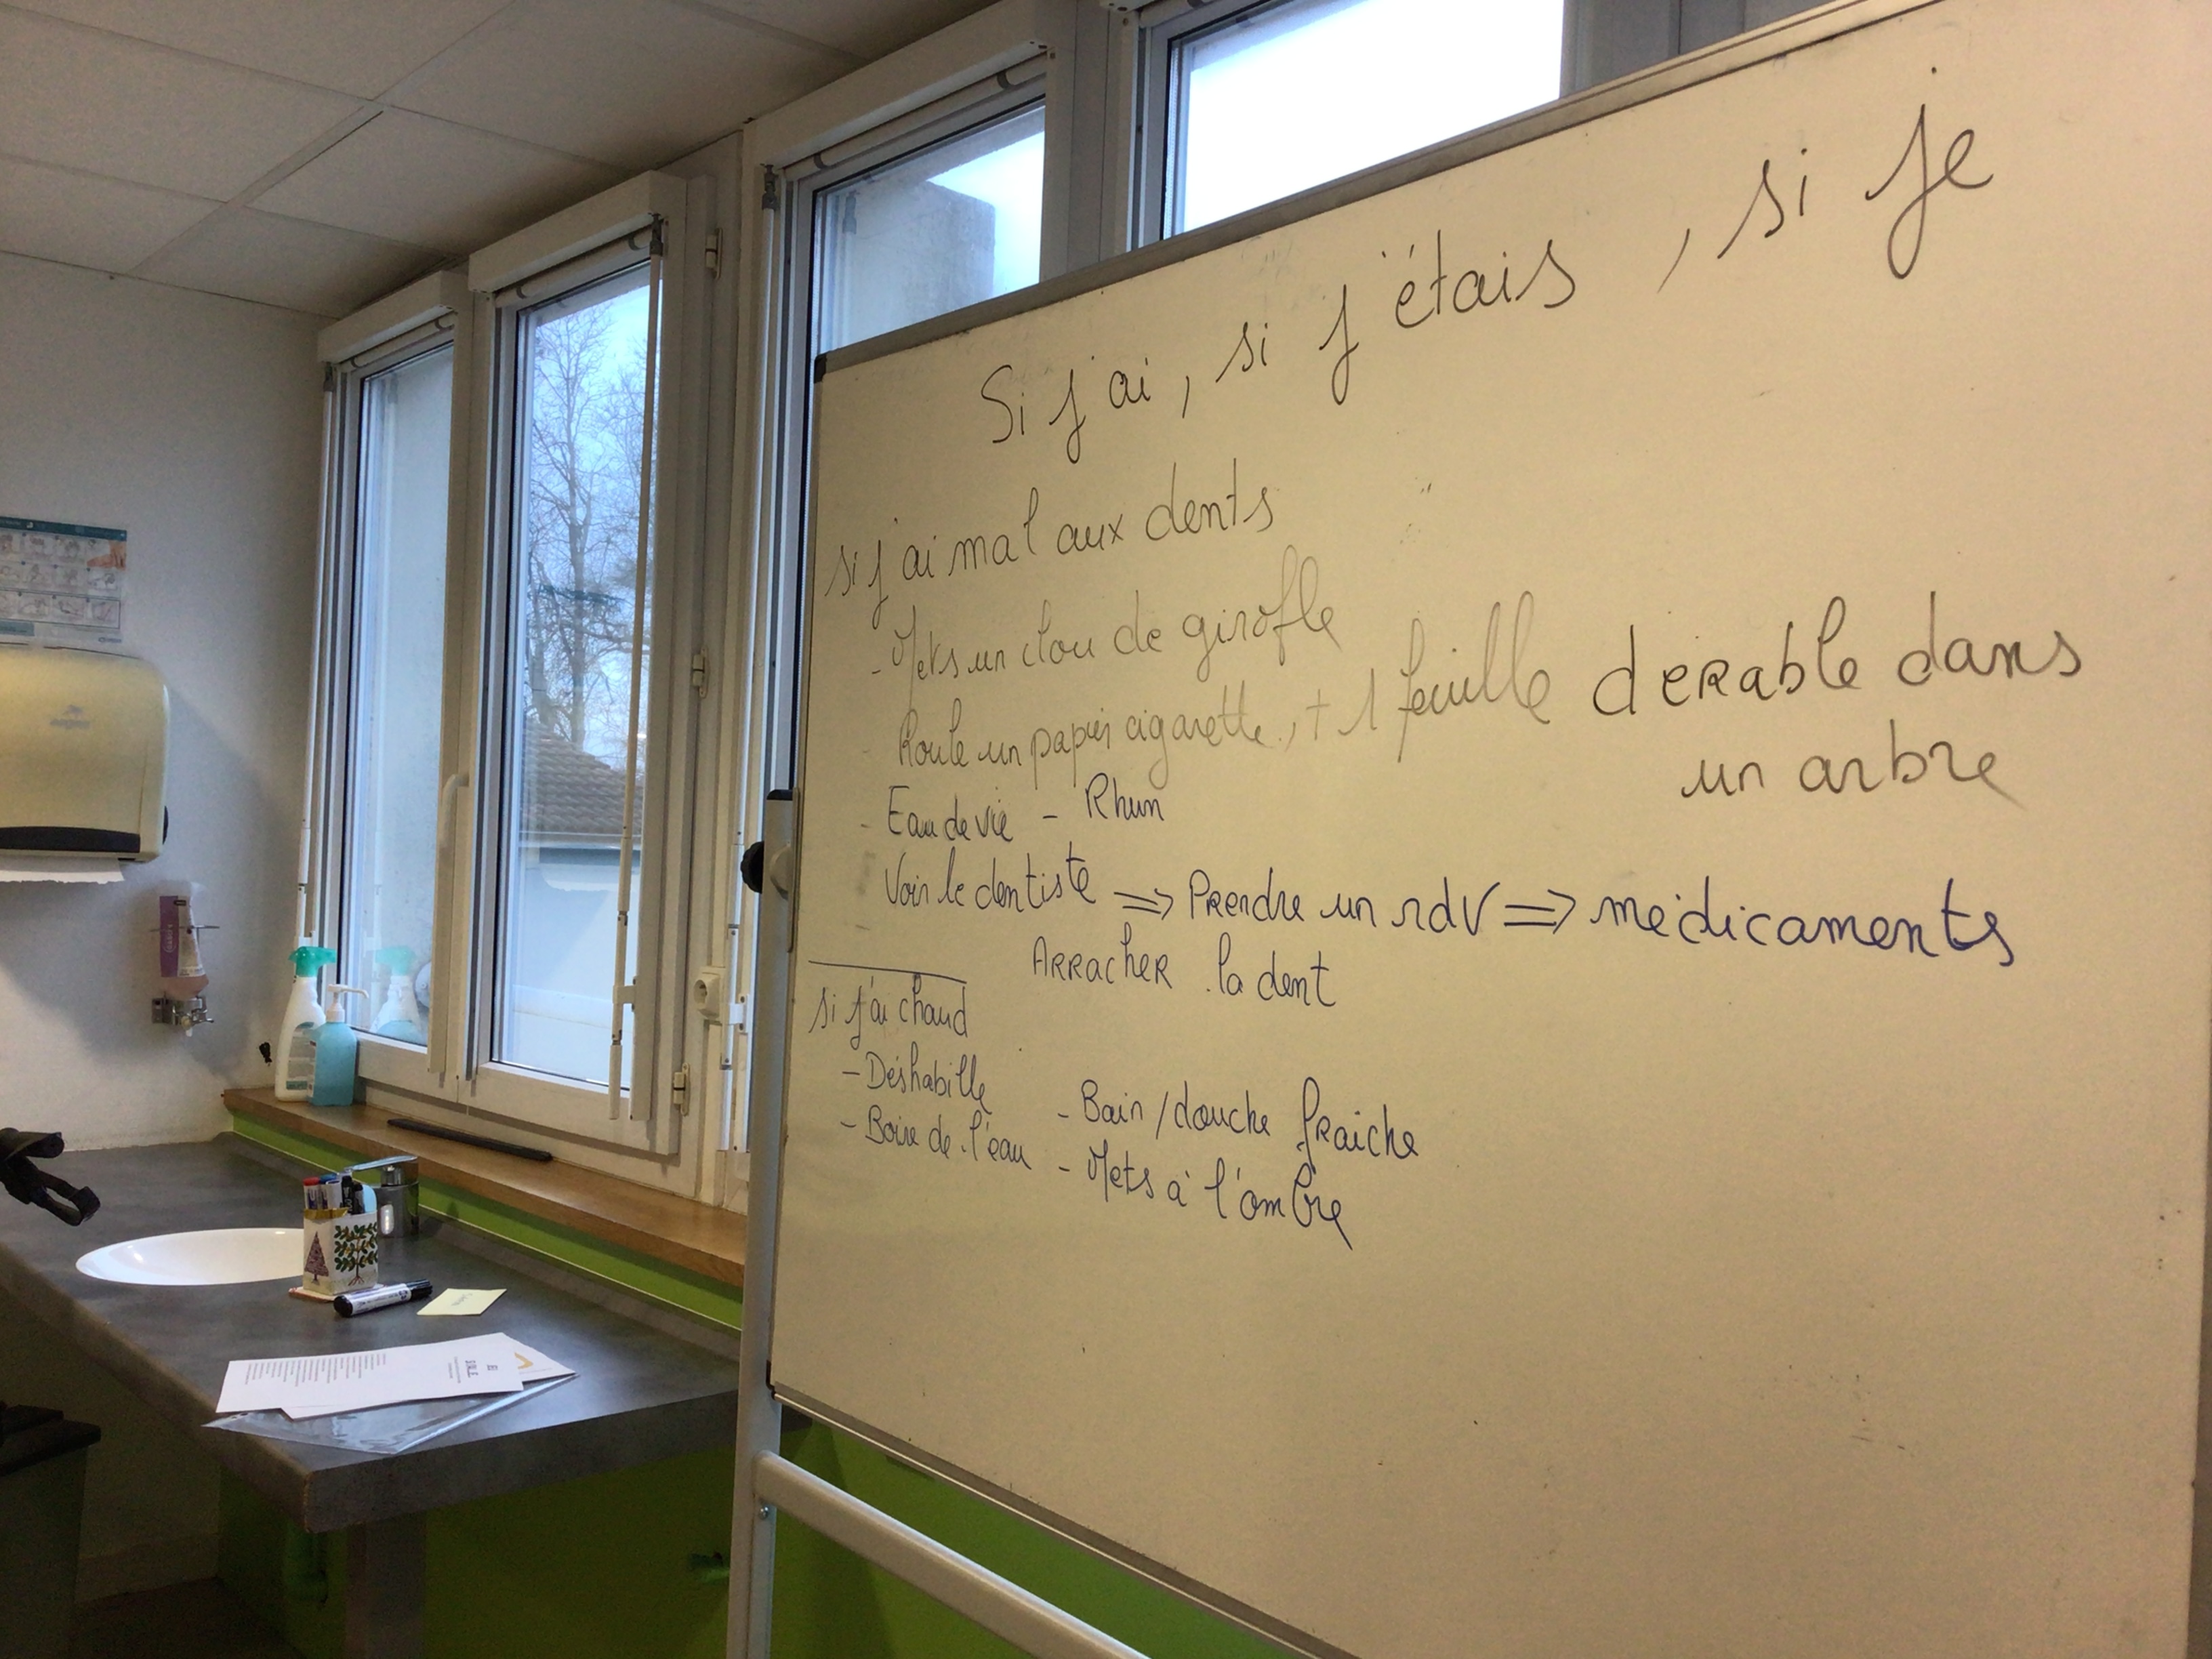 Si j'ai, si j'étais, si je
si j'ai mal aux dents
- Mets un clou de girofle
- Roule un papier cigarette, + 1 feuille dérable dans
un arbre
- Eau de vie - Rhum
Voir le dentiste => Prendre un rdv => médicaments
Arracher la dent
si j'ai chaud
- Déshabille
- Boire de l'eau
- Bain / douche fraiche
- Mets à l'ombre